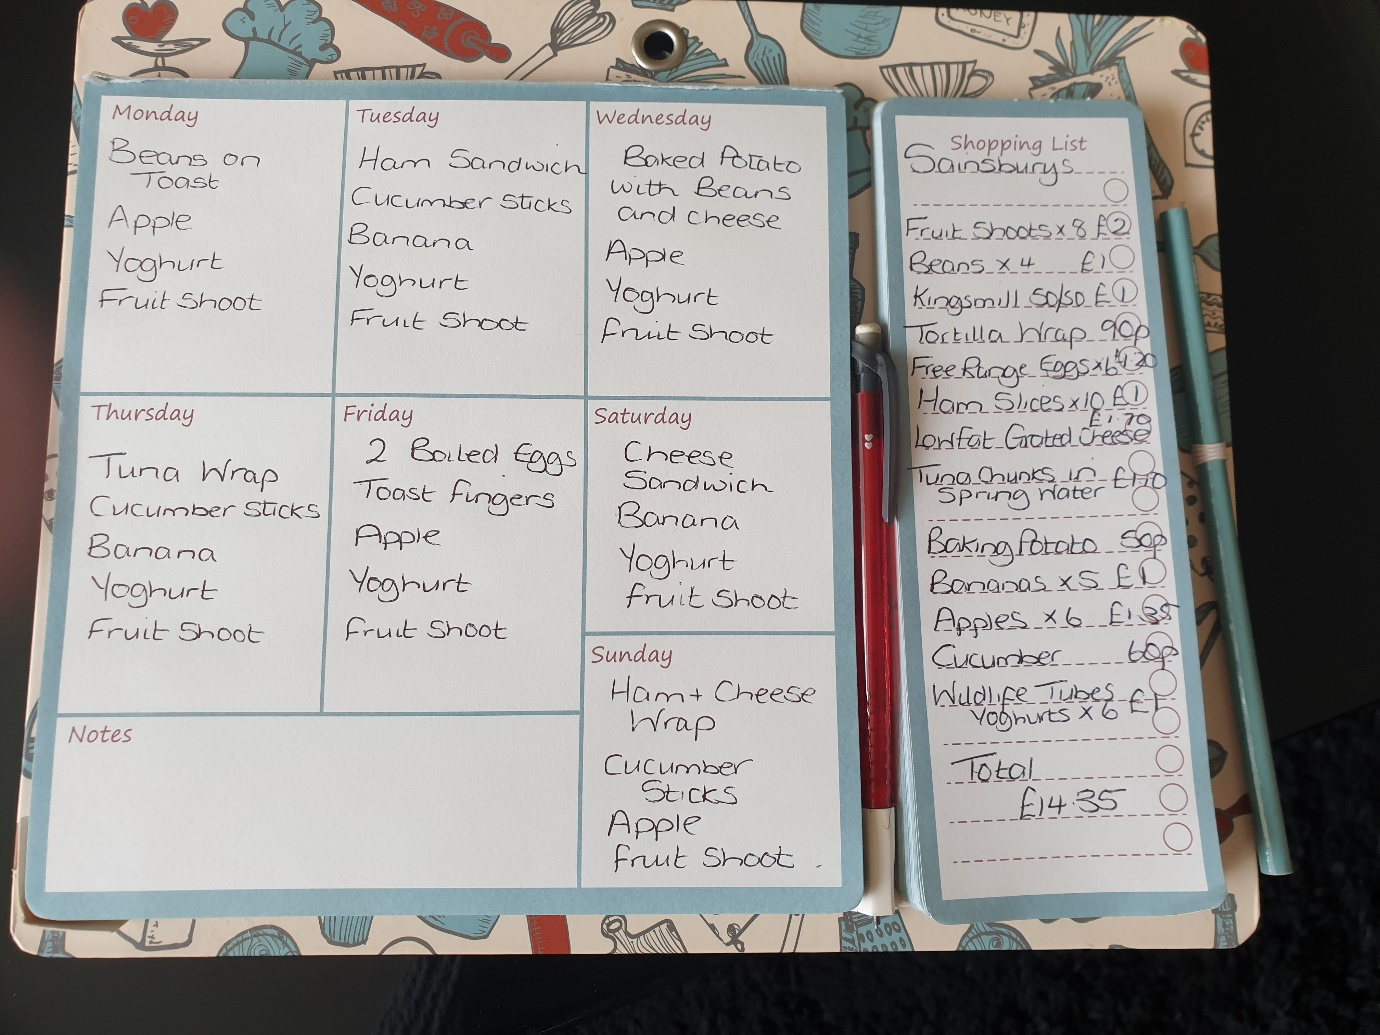 HONEY
Monday
Beans on
Toast
Apple
Yoghurt
Fruit Shoot
Tuesday
Ham Sandwich
Cucumber Sticks
Banana
Yoghurt
Fruit Shoot
Wednesday
Baked Potato
with Beans
and cheese
Apple
Yoghurt
Fruit Shoot
Thursday
Tuna Wrap
Cucumber Sticks
Banana
Yoghurt
Fruit Shoot
Friday
2 Boiled Eggs
Toast fingers
Apple
Yoghurt
Fruit Shoot
Saturday
Cheese
Sandwich
Banana
Yoghurt
fruit Shoot
Sunday
Ham + Cheese
Wrap
Cucumber
Sticks
Apple
fruit Shoot .
Notes
Shopping List
Sainsburys
Fruit Shoots x 8 £2
Beans x 4 £1
Kingsmill 50/50 £1
Tortilla Wrap 90p
Free Range Eggs x 6 £1.20
Ham Slices x 10 £1
£1.70
Low Fat Grated Cheese
Tuna Chunks in £1.10
Spring Water
Baking Potato 50p
Bananas x 5 £1
Apples x 6 £1.35
Cucumber 60p
Wildlife Tubes
Yoghurts x 6 £1
Total
£14.35